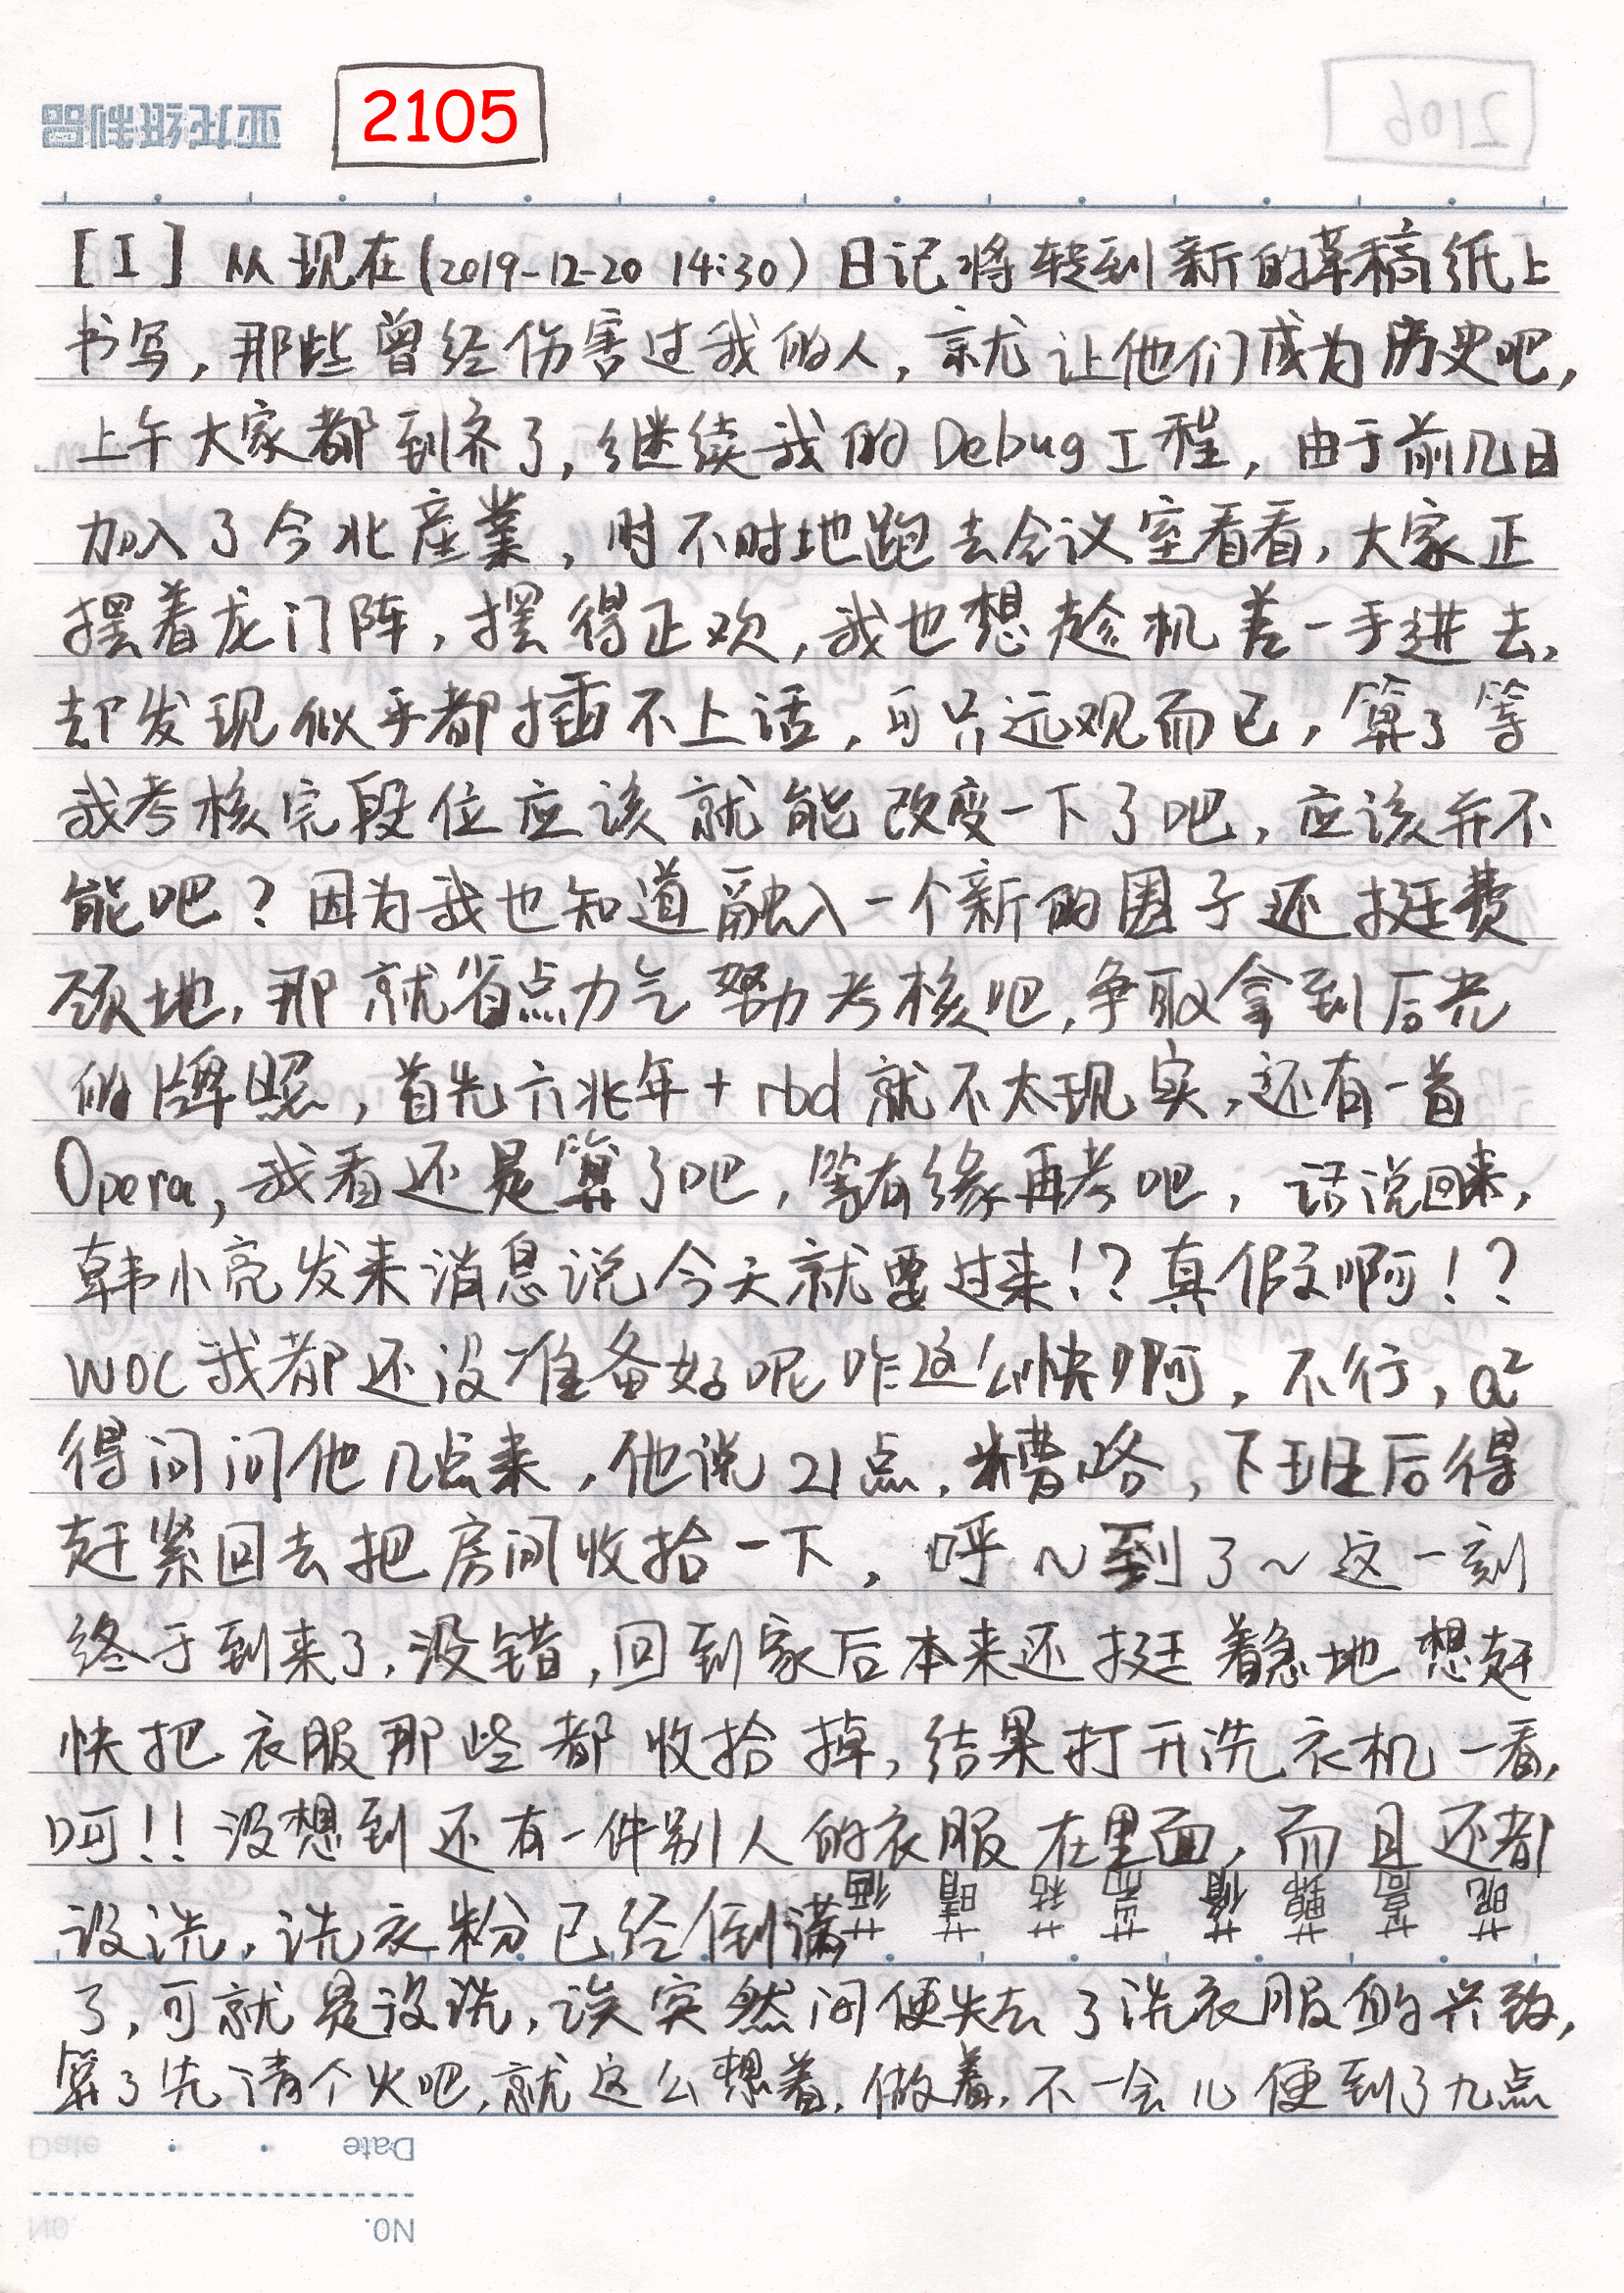 2105
[I] 从现在(2019-12-20 14:30) 日记将转到新的草稿纸上
书写, 那些曾经伤害过我的人, 就让他们成为历史吧,
上午大家都到齐了, 继续我的Debug工程, 由于前几日
加入了今北産業, 时不时地跑去会议室看看, 大家正
摆着龙门阵, 摆得正欢, 我也想趁机差一手进去,
却发现似乎都插不上话, 可只远观而已, 算了等
我考核完段位应该就能改变一下了吧, 应该并不
能吧? 因为我也知道融入一个新的圈子还挺费
颈地, 那就省点力气努力考核吧, 争取拿到后光
的牌照, 首先六兆年+rbd就不太现实, 还有一首
Opera, 我看还是算了吧, 等有缘再考吧, 话说回来,
韩小亮发来消息说今天就要过来!? 真假啊!?
WOC我都还没准备好呢咋这么快啊, 不行, a²
得问问他几点来, 他说21点, 糟咯, 下班后得
赶紧回去把房间收拾一下, 呼~到了~这一刻
终于到来了, 没错, 回到家后本来还挺着急地想赶
快把衣服那些都收拾掉, 结果打开洗衣机一看,
呵!! 没想到还有一件别人的衣服在里面, 而且还都
没洗, 洗衣粉已经倒满
了, 可就是没洗, 诶突然间便失去了洗衣服的兴致,
算了先清个火吧, 就这么想着, 做着, 不一会儿便到了九点
Date
NO.